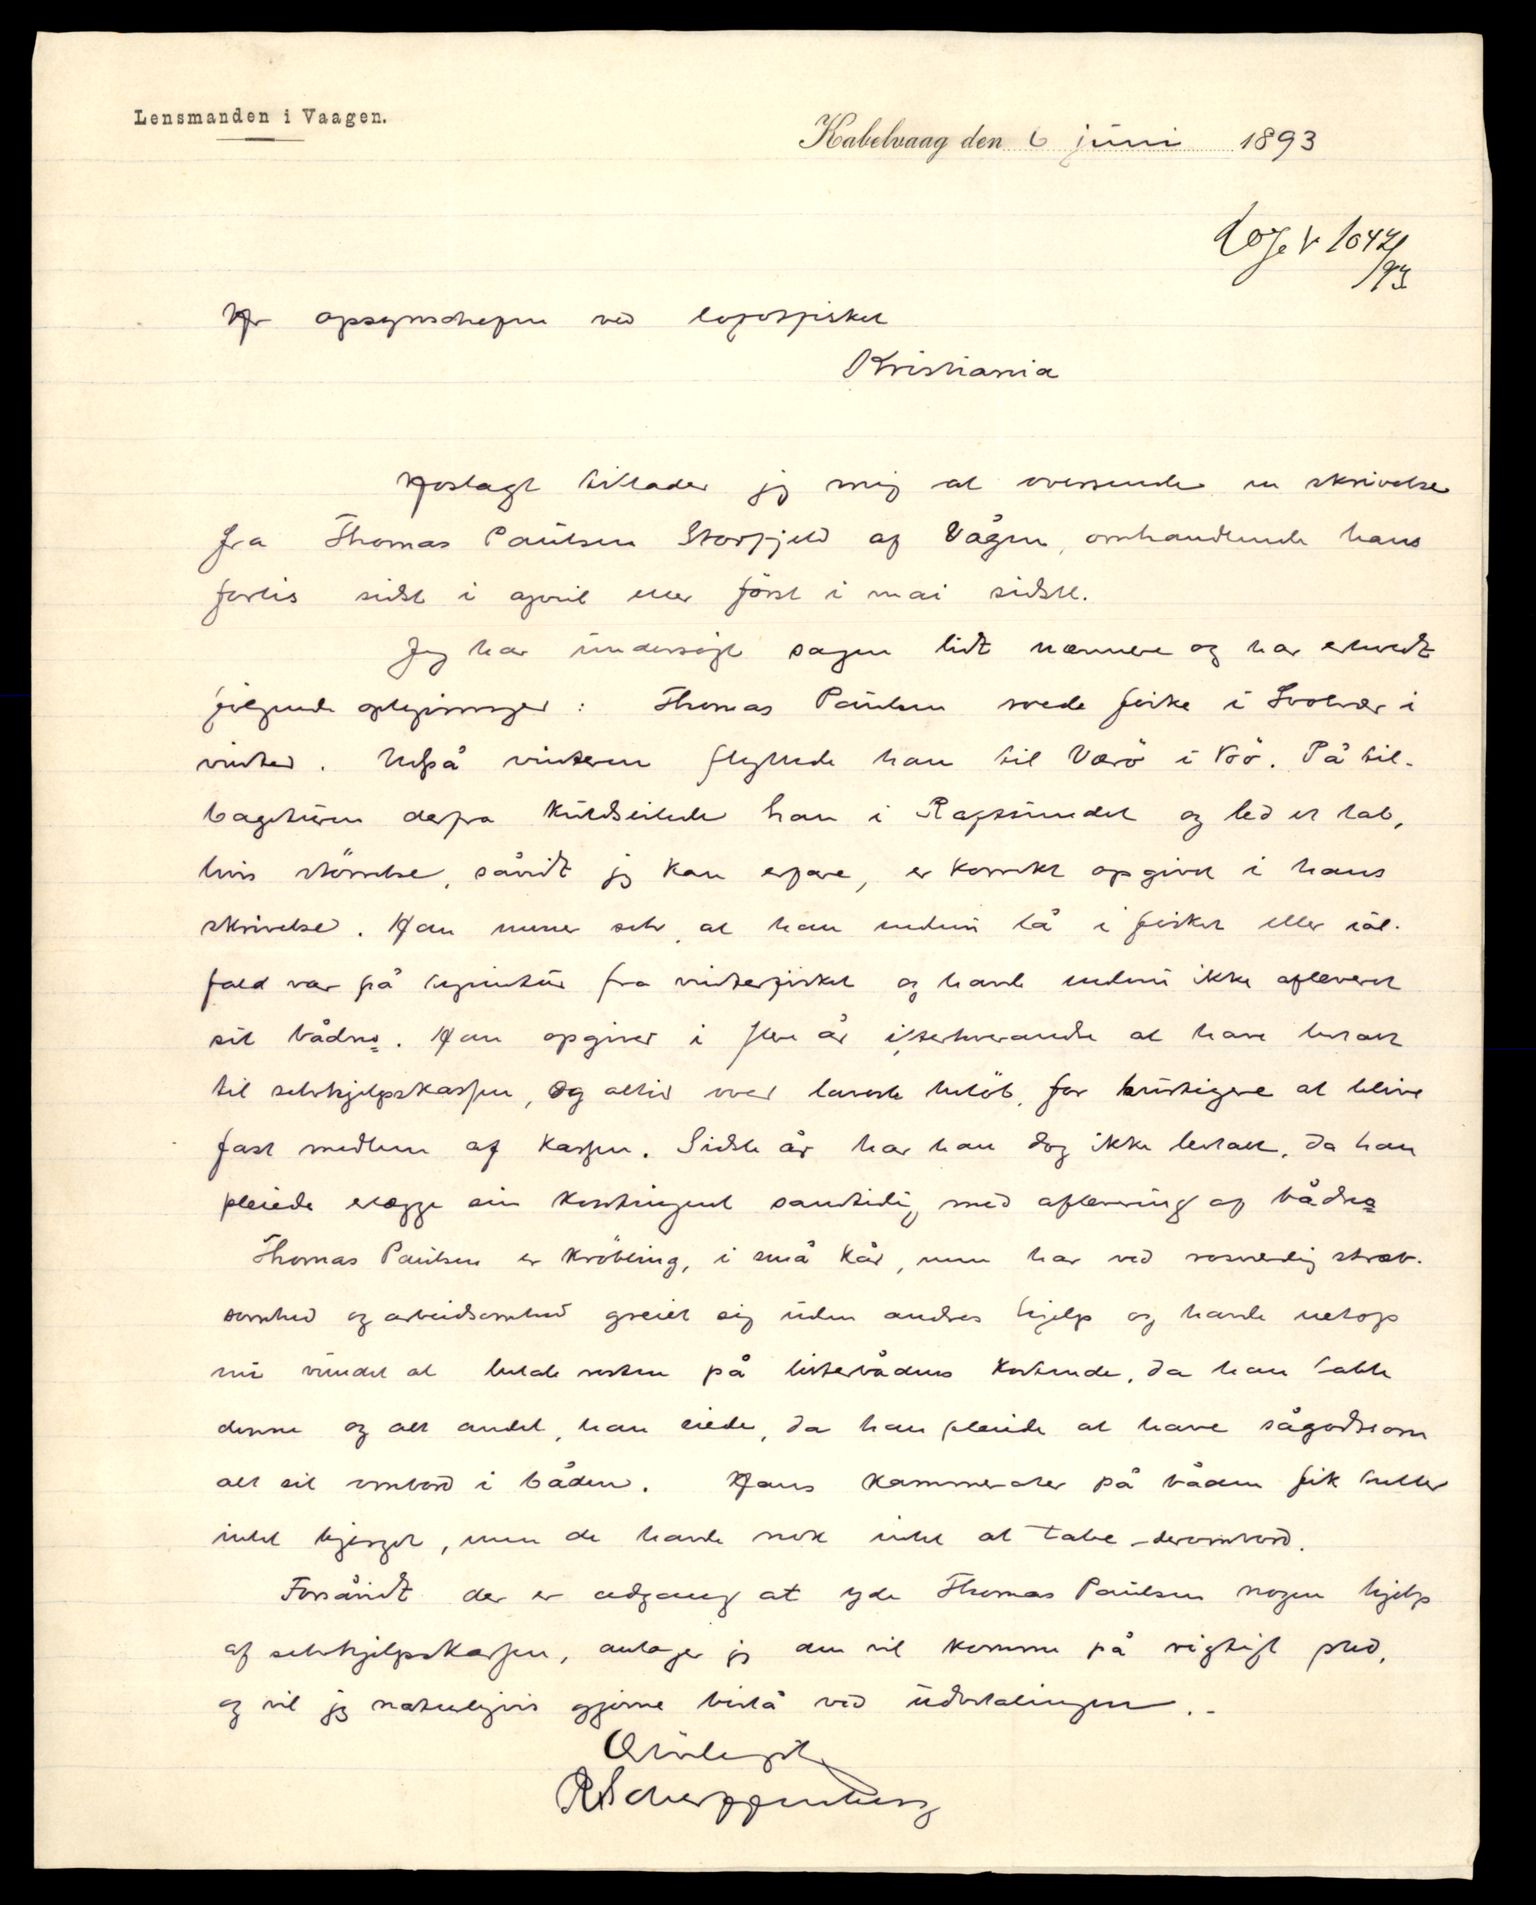 Lensmanden i Vaagen.
Kabelvaag den 6 juni 1893
1047/93
Hr opsynschefen ved lofotfisket
Kristiania
Hoslagt tillader jeg mig at oversende en skrivelse
fra Thomas Paulsen Storfjeld af Vågen, omhandlende hans
forlis sidst i april eller först i mai sidstl.
Jeg har undersögt sagen lidt nærmere og har erhvedt
følgende oplysninger: Thomas Paulsen roede fiske i Svolvær i
vinter. Utpå vinteren flyttede han til Værö i Bö. På til-
bageturen derfra kuldseilede han i Raftsundet og led et tab,
hvis störrelse, såvidt jeg kan erfare, er korrekt opgivet i hans
skrivelse. Han mener selv, at han endnu lå i fisket eller ial-
fald var på hjemtur fra vinterfisket og havde endnu ikke afleveret
sit bådno. Han opgiver i flere år efterhverandre at have betalt
til selvhjelpskassen, og altid over laveste beløb, for hurtigere at blive
fast medlem af kassen. Sidste år har han dog ikke betalt, da han
pleiede erlægge sin kontingent samtidig med aflevering af bådno
Thomas Paulsen er kröbling, i små kår, men har ved rosverdig stræb-
somhed og arbeidsomhed greiet sig uden andres hjelp og havde netop
nu vundet at betale resten på listerbådens kostende, da han tabte
denne og alt andet, han eiede, da han pleide at have sågodtsom
alt sit ombord i båden. Hans kammerater på båden fik heller
intet bjerget, men de havde nok intet at tabe derombord.
Forsåvidt der er adgang at yde Thomas Paulsen nogen hjelp
af selvhjelpskassen, antager jeg den vil komme på rigtigt sted,
og vil jeg naturligvis gjerne bistå ved udbetalingen.-
Ærbödigst
R Scherffenberg